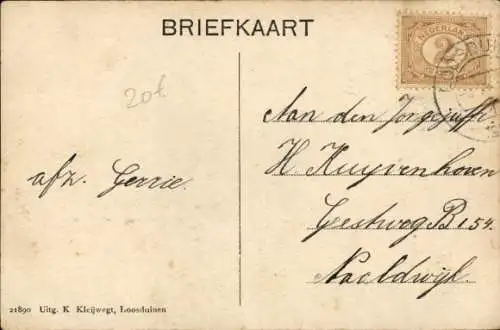 BRIEFKAART
NEDERLAND
2
20t
Aan den Jongejuffr.
H. Kuyvenhoven
Geestweg B 154.
Naaldwijk.
afz. Gerrie.
21890 Uitg. K Kleijwegt, Loosduinen